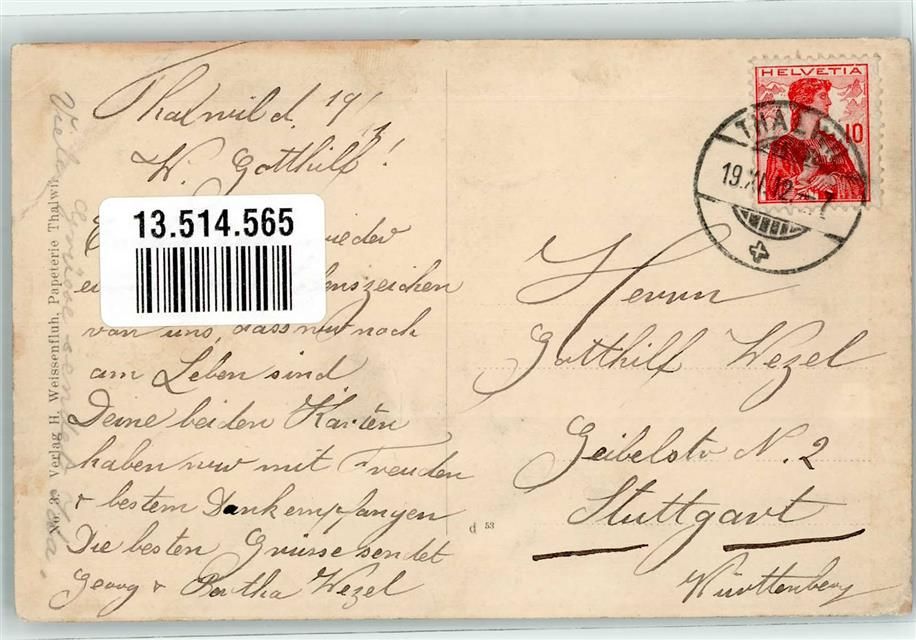 Thalwil d. 19/
W. Gotthilf!
wieder
von uns, dass wir noch
am Leben sind
Deine beiden Karten
haben wir mit Freuden
& bestem Dank empfangen
Die besten Grüsse sendet
Georg & Bertha Wezel
13.514.565
Viele Grüsse sendet
Verlag H. Weissenfluh, Papeterie Thalwil
d 53
HELVETIA
10
THALWIL
19.XI.12
Herrn
Gotthilf Wezel
Geibelstr N. 2
Stuttgart
Württemberg